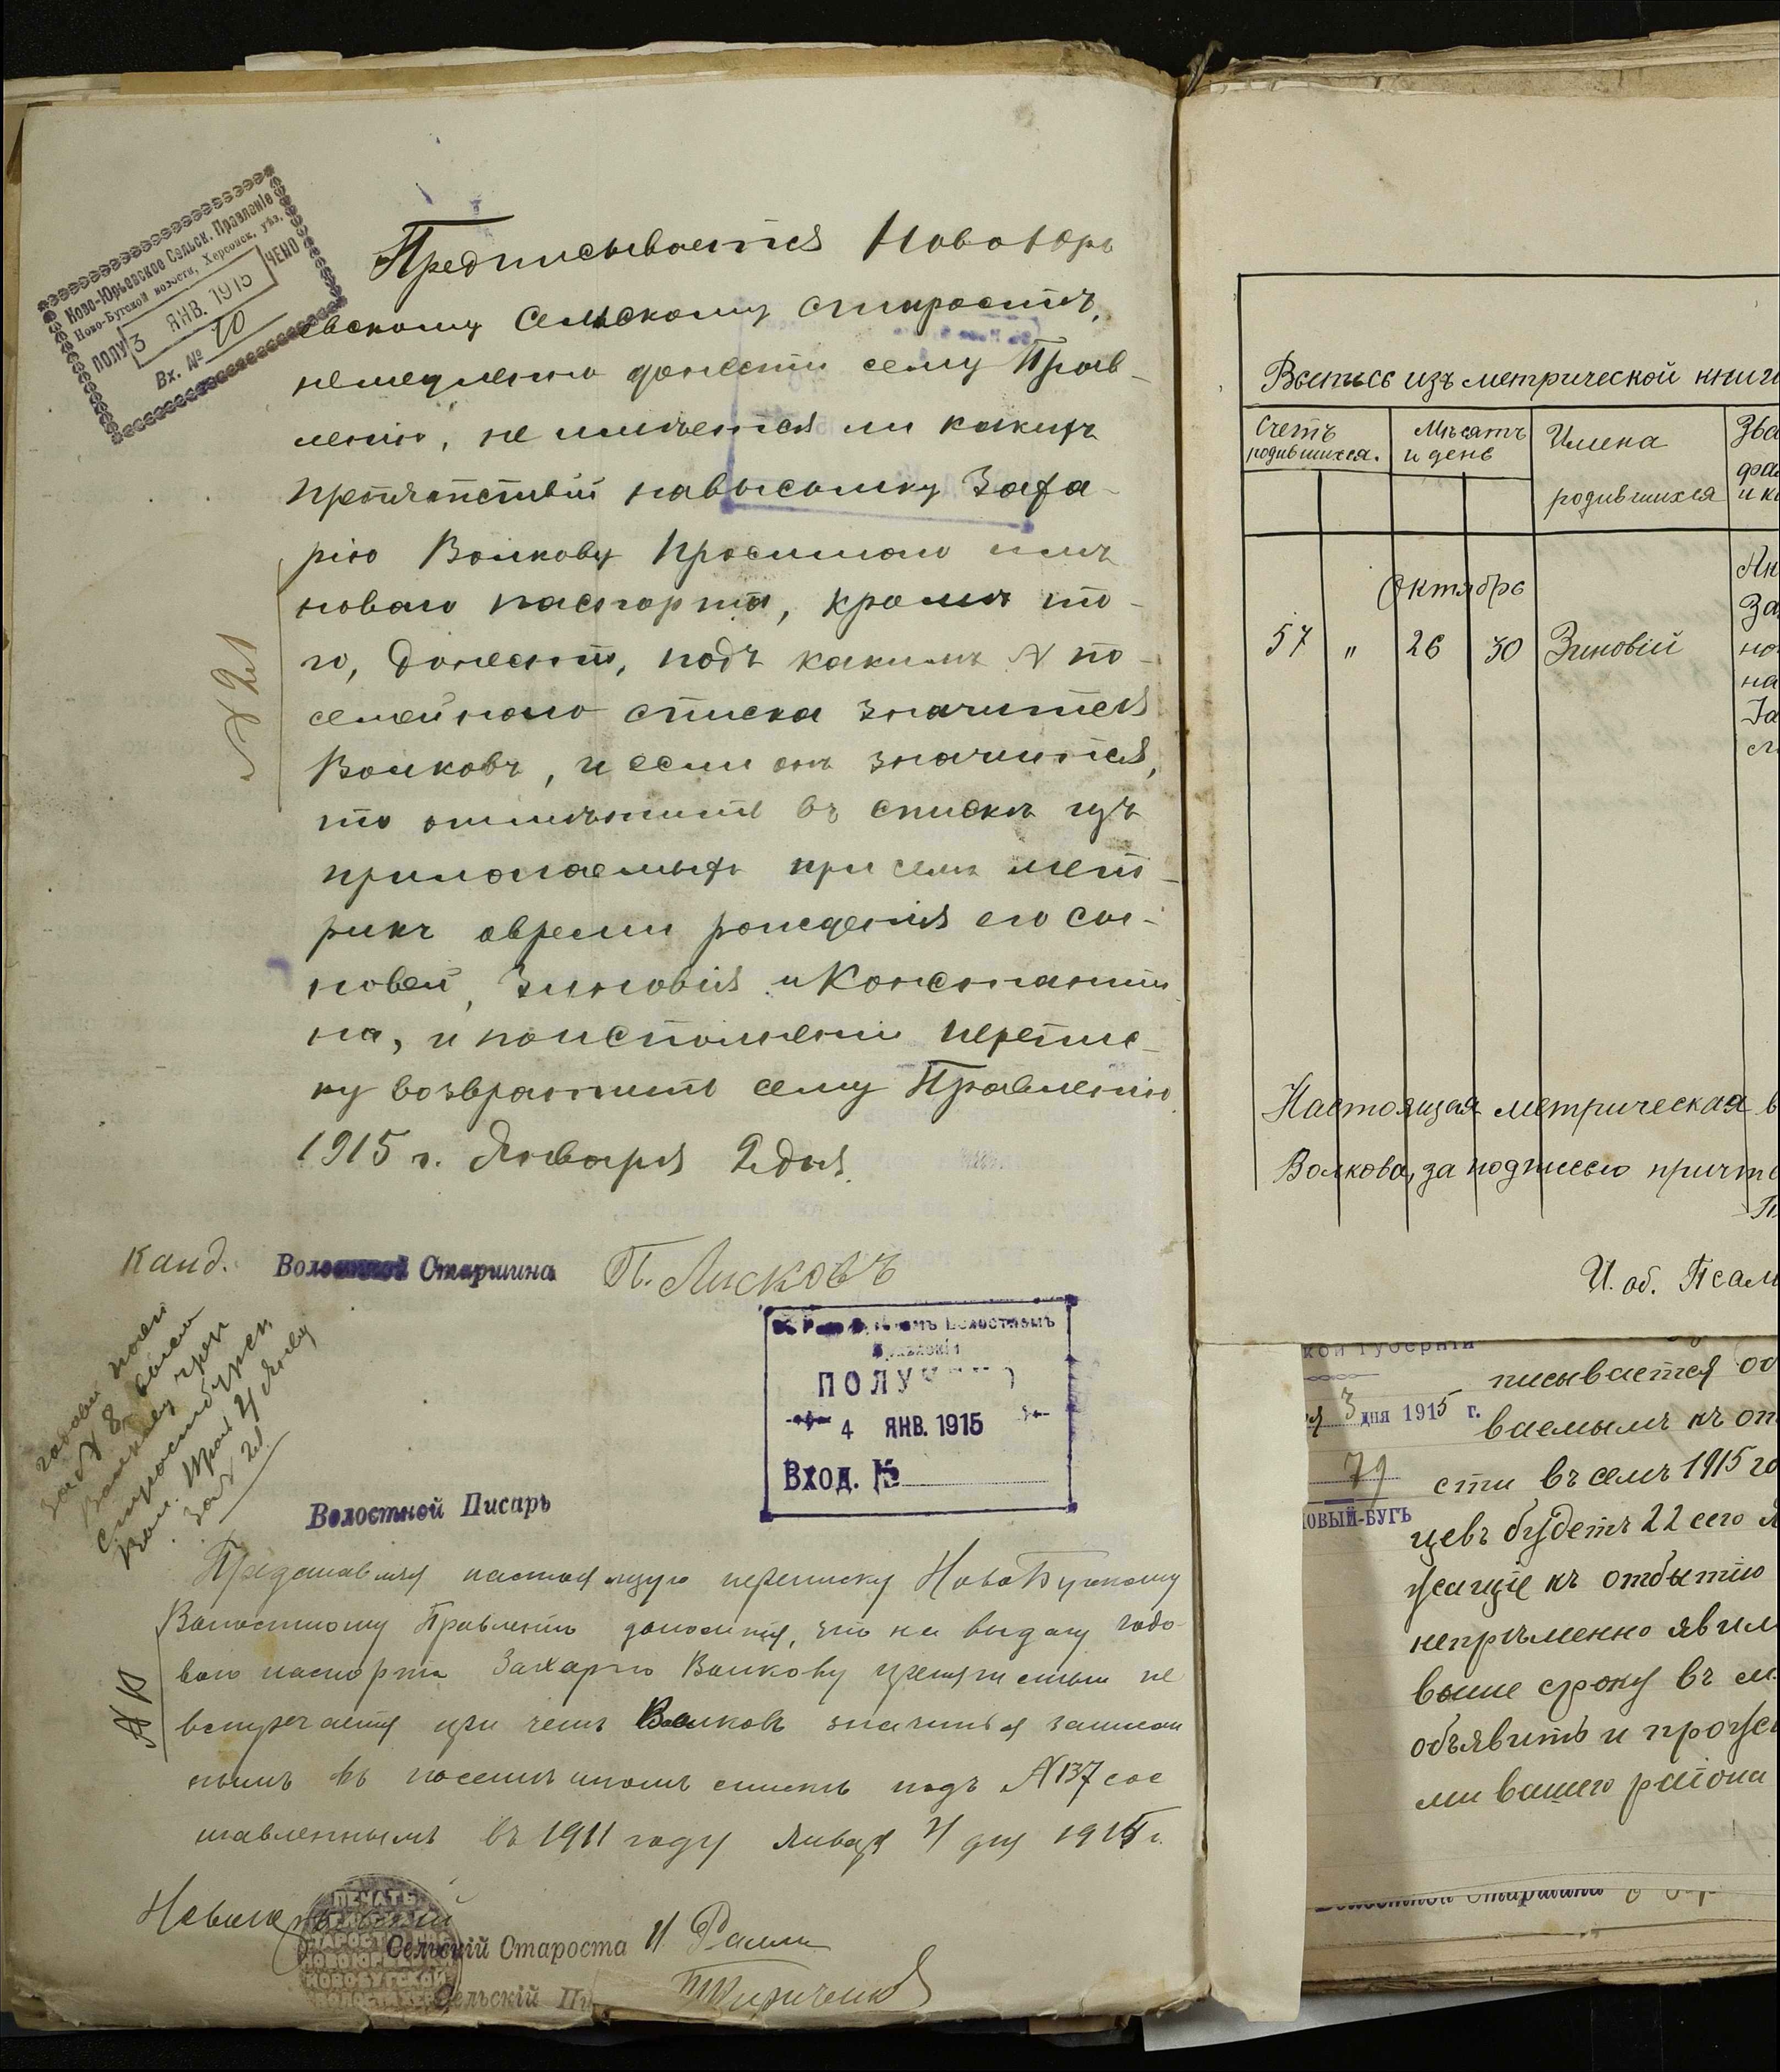 Ново-Юрьевское Сельск. Правленіе
Ново-Бугской волости, Херсонск. уѣз.
ПОЛУЧЕНО
3 ЯНВ. 1915
Вх. № 10
Предписывается Новоюрь
евскому Сельскому старостѣ,
немедленно донести сему Прав-
ленію, не имѣется ли какихъ
препятствій навысылку Заха-
рію Волкову просимого имъ
новаго паспорта, кромѣ то-
го, донести, подъ какимъ № по-
семейного списка значится
Волковъ, и если онъ значится,
то отмѣтить въ спискѣ изъ
прилогаемыхъ при семъ мет-
рикъ овремени рожденія его сы-
новей, Зиновія и Константи
на, и поисполненіи перепис-
ку возвратить сему Правленію
1915 г. Января 2 дня.
№ 21
Канд. Волостной Старшина П. Лисковъ
Волостнымъ
Правленіи
ПОЛУЧЕНО
4 ЯНВ. 1915
Вход. №
за № 8
Волкову чрез
Вол. Прав. 4 Янв
за № 21
Волостной Писарь
Представляя настоящую переписку НовоБугскому
Волостному Правленію доносится, что на выдачу годо-
вого паспорта Захарію Волкову препятствій не
встречается при чемъ Волковъ значится записан
нымъ въ посемейномъ спискѣ подъ № 137 сос
тавленнымъ въ 1911 году Января 4 дня 1915 г.
Новоюрьевскій
ПЕЧАТЬ
СЕЛЬСКАГО
СТАРОСТЫ
НОВОЮРЬЕВКИ
НОВОБУГСКОЙ
ВОЛОСТИ ХЕРС
Сельскій Староста И.
Сельскій Пи
Выпись изъ метрической книги
Счетъ
родившихся.
Мѣсяцъ
и день
Имена
родившихся
Зва
фа
и к
Октябрь
57 " 26 30 Зиновій
Як
За
но
на
Настоящая метрическая в
Волкова, за подписью причт
И. об. Псал
кой Губерніи
я 3 дня 1915 г.
79
НОВЫЙ-БУГЪ
писывается об
ваемымъ къ от
сти въ семъ 1915 го
цевъ будетъ 22 сего Я
жащіе къ отбытію
непрѣменно явил
выше сроку въ м
объявить и прочь
ми вашего раіона
Волостной Старшина